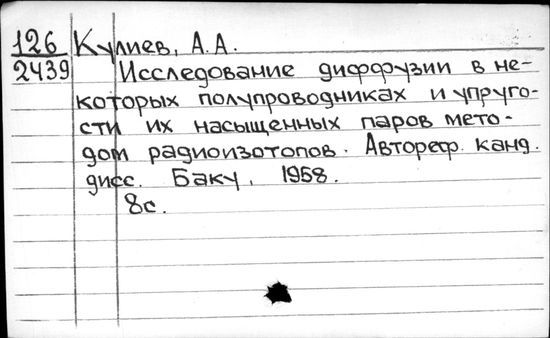 126 Кулиев, А.А.
2439 Исследование диффузии в не-
которых полупроводниках и упруго-
сти их насыщенных паров мето-
дом радиоизотопов. Автореф. канд.
дисс. Баку, 1958.
8с.